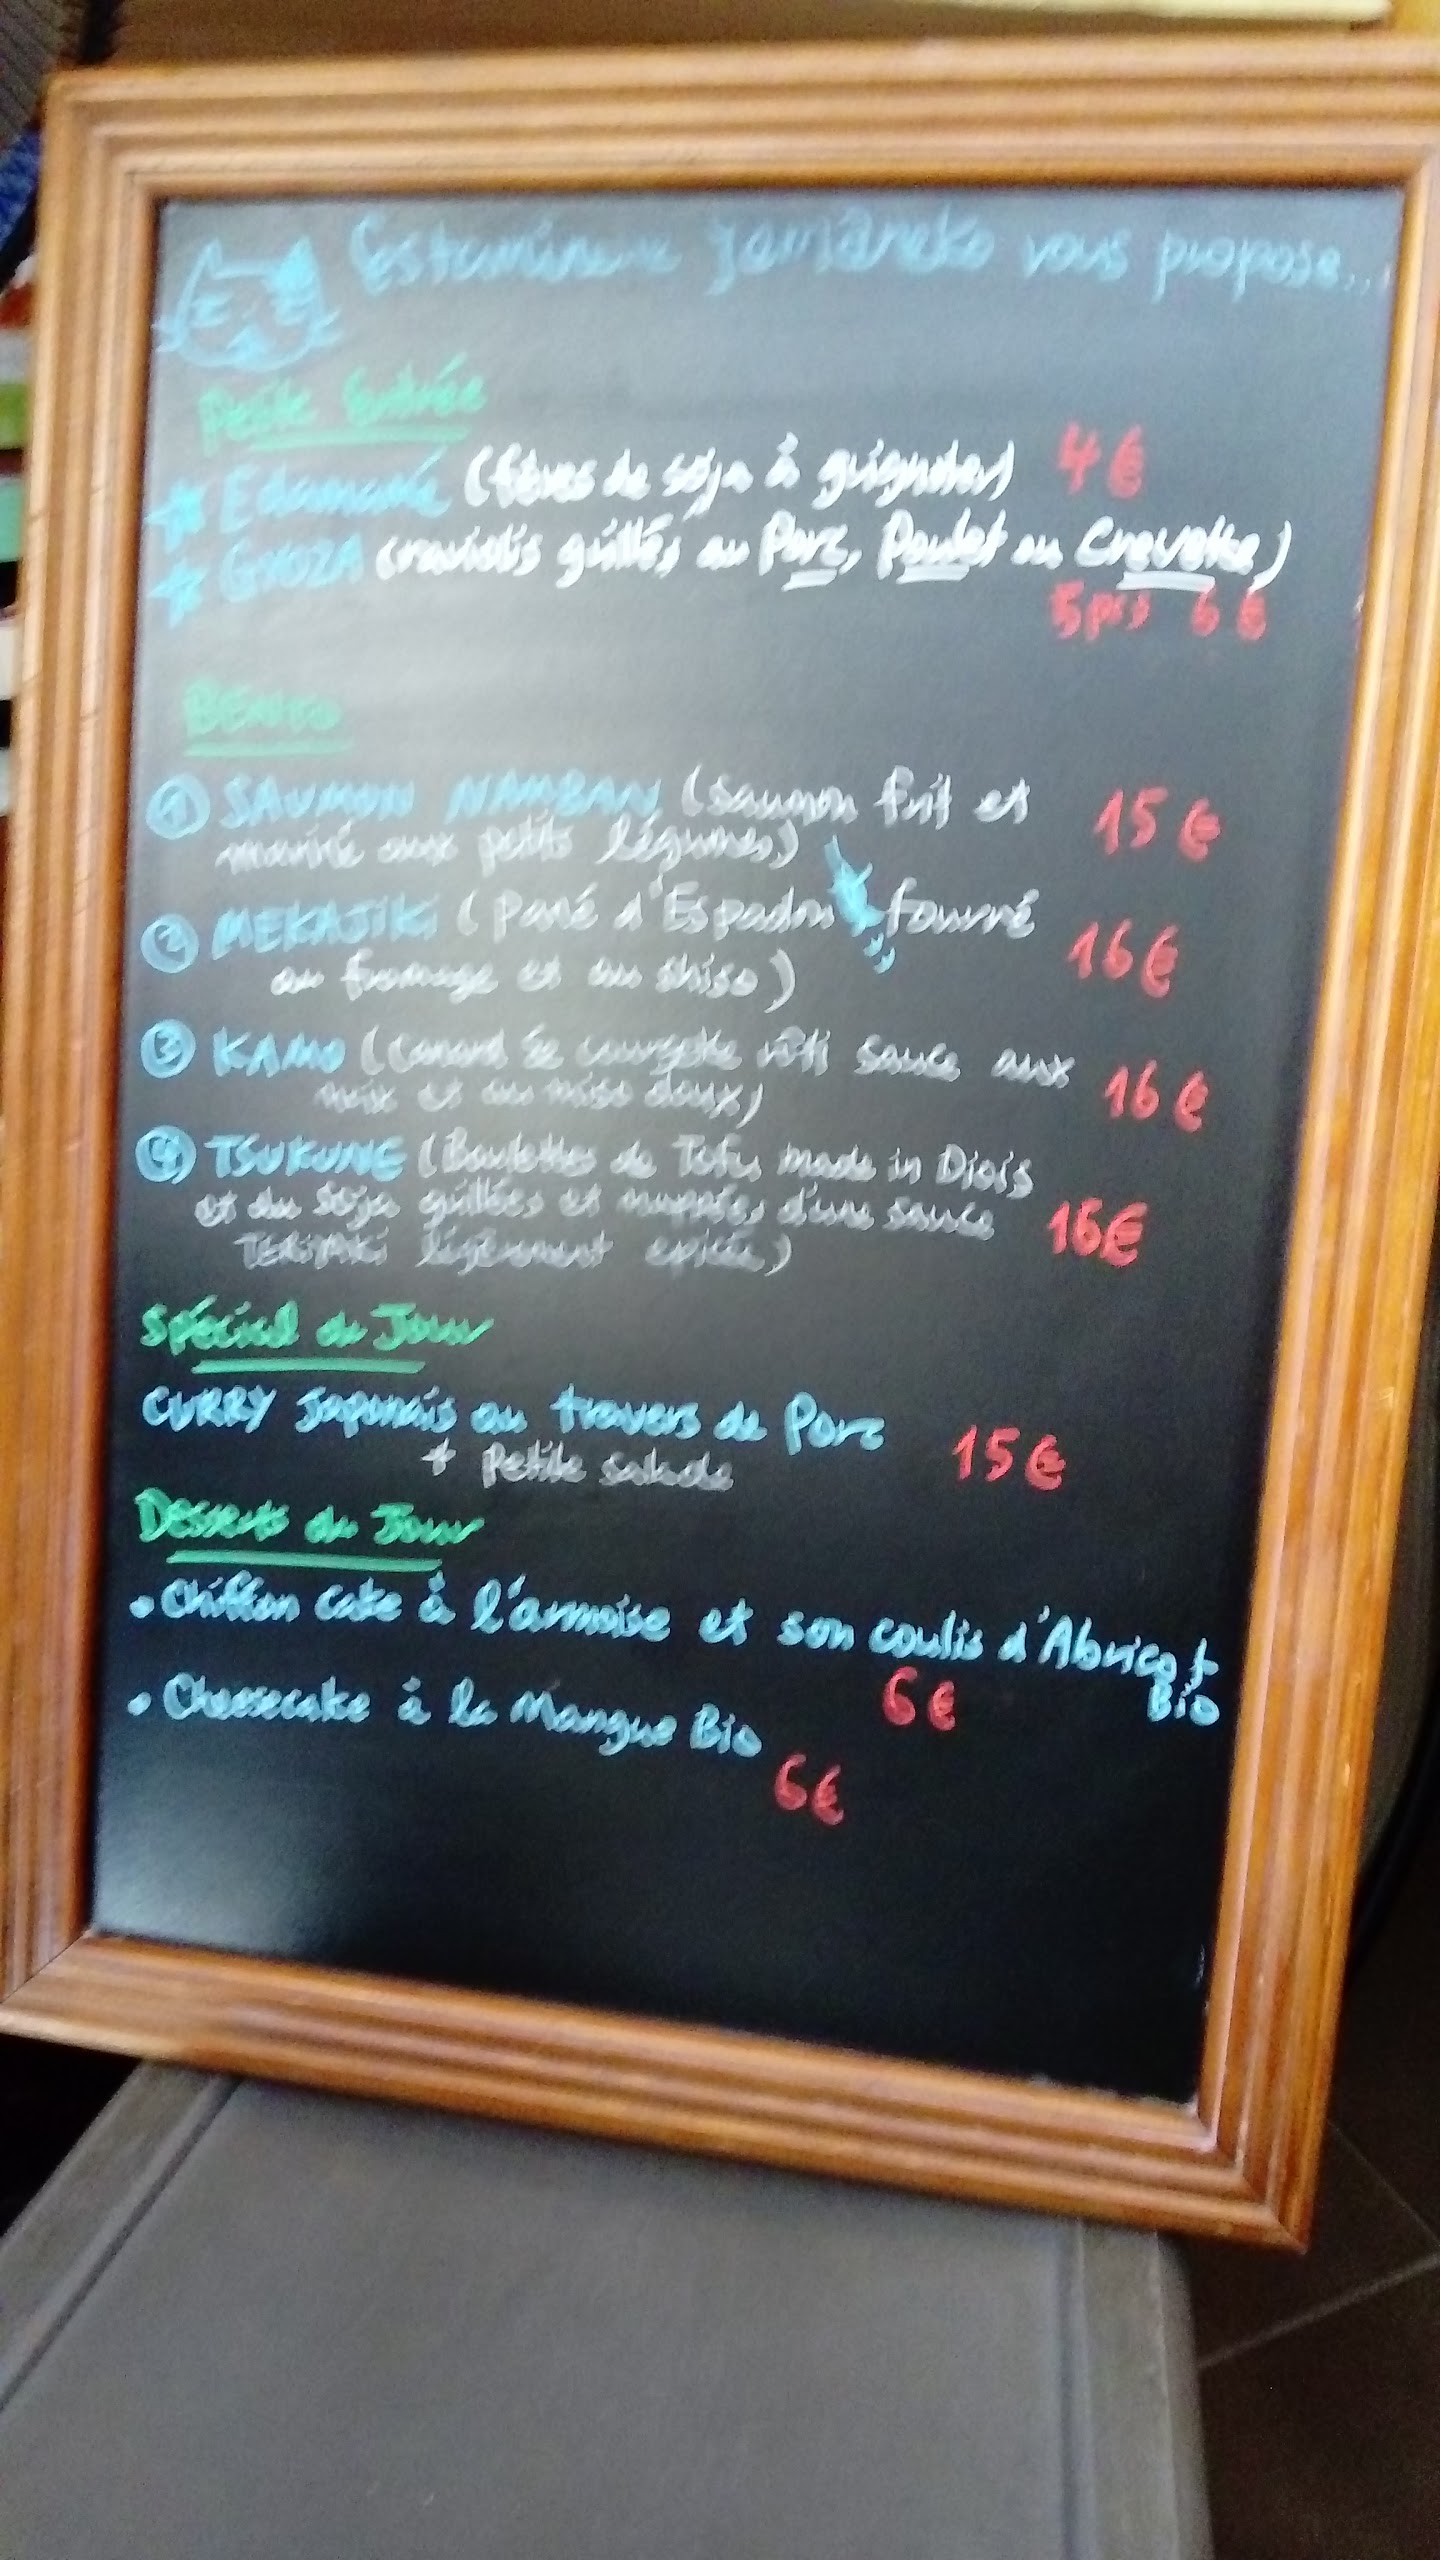 yamaneko vous propose...
Petite Entrée
Edamamé (fèves de soja à grignoter) 4€
GYOZA (raviolis grillés au Porc, Poulet ou Crevette)
5pcs 6€
BENTO
① SAUMON NAMBAN (Saumon frit et 15€
mariné aux petits légumes)
② MEKAJIKI (Pané d'Espadon fourré 16€
au fromage et au shiso)
③ KAMO (Canard & courgette rôti sauce aux 16€
noix et au miso doux)
④ TSUKUNE (Boulettes de Tofu made in Diois
et du soja grillées et nappées d'une sauce
TERIYAKI légèrement epicée)
Spécial du Jour
CURRY Japonais au travers de Porc 15€
+ Petite salade
Desserts du Jour
• Chiffon cake à l'armoise et son coulis d'Abricot
Bio
6€
• Cheesecake à la Mangue Bio
6€